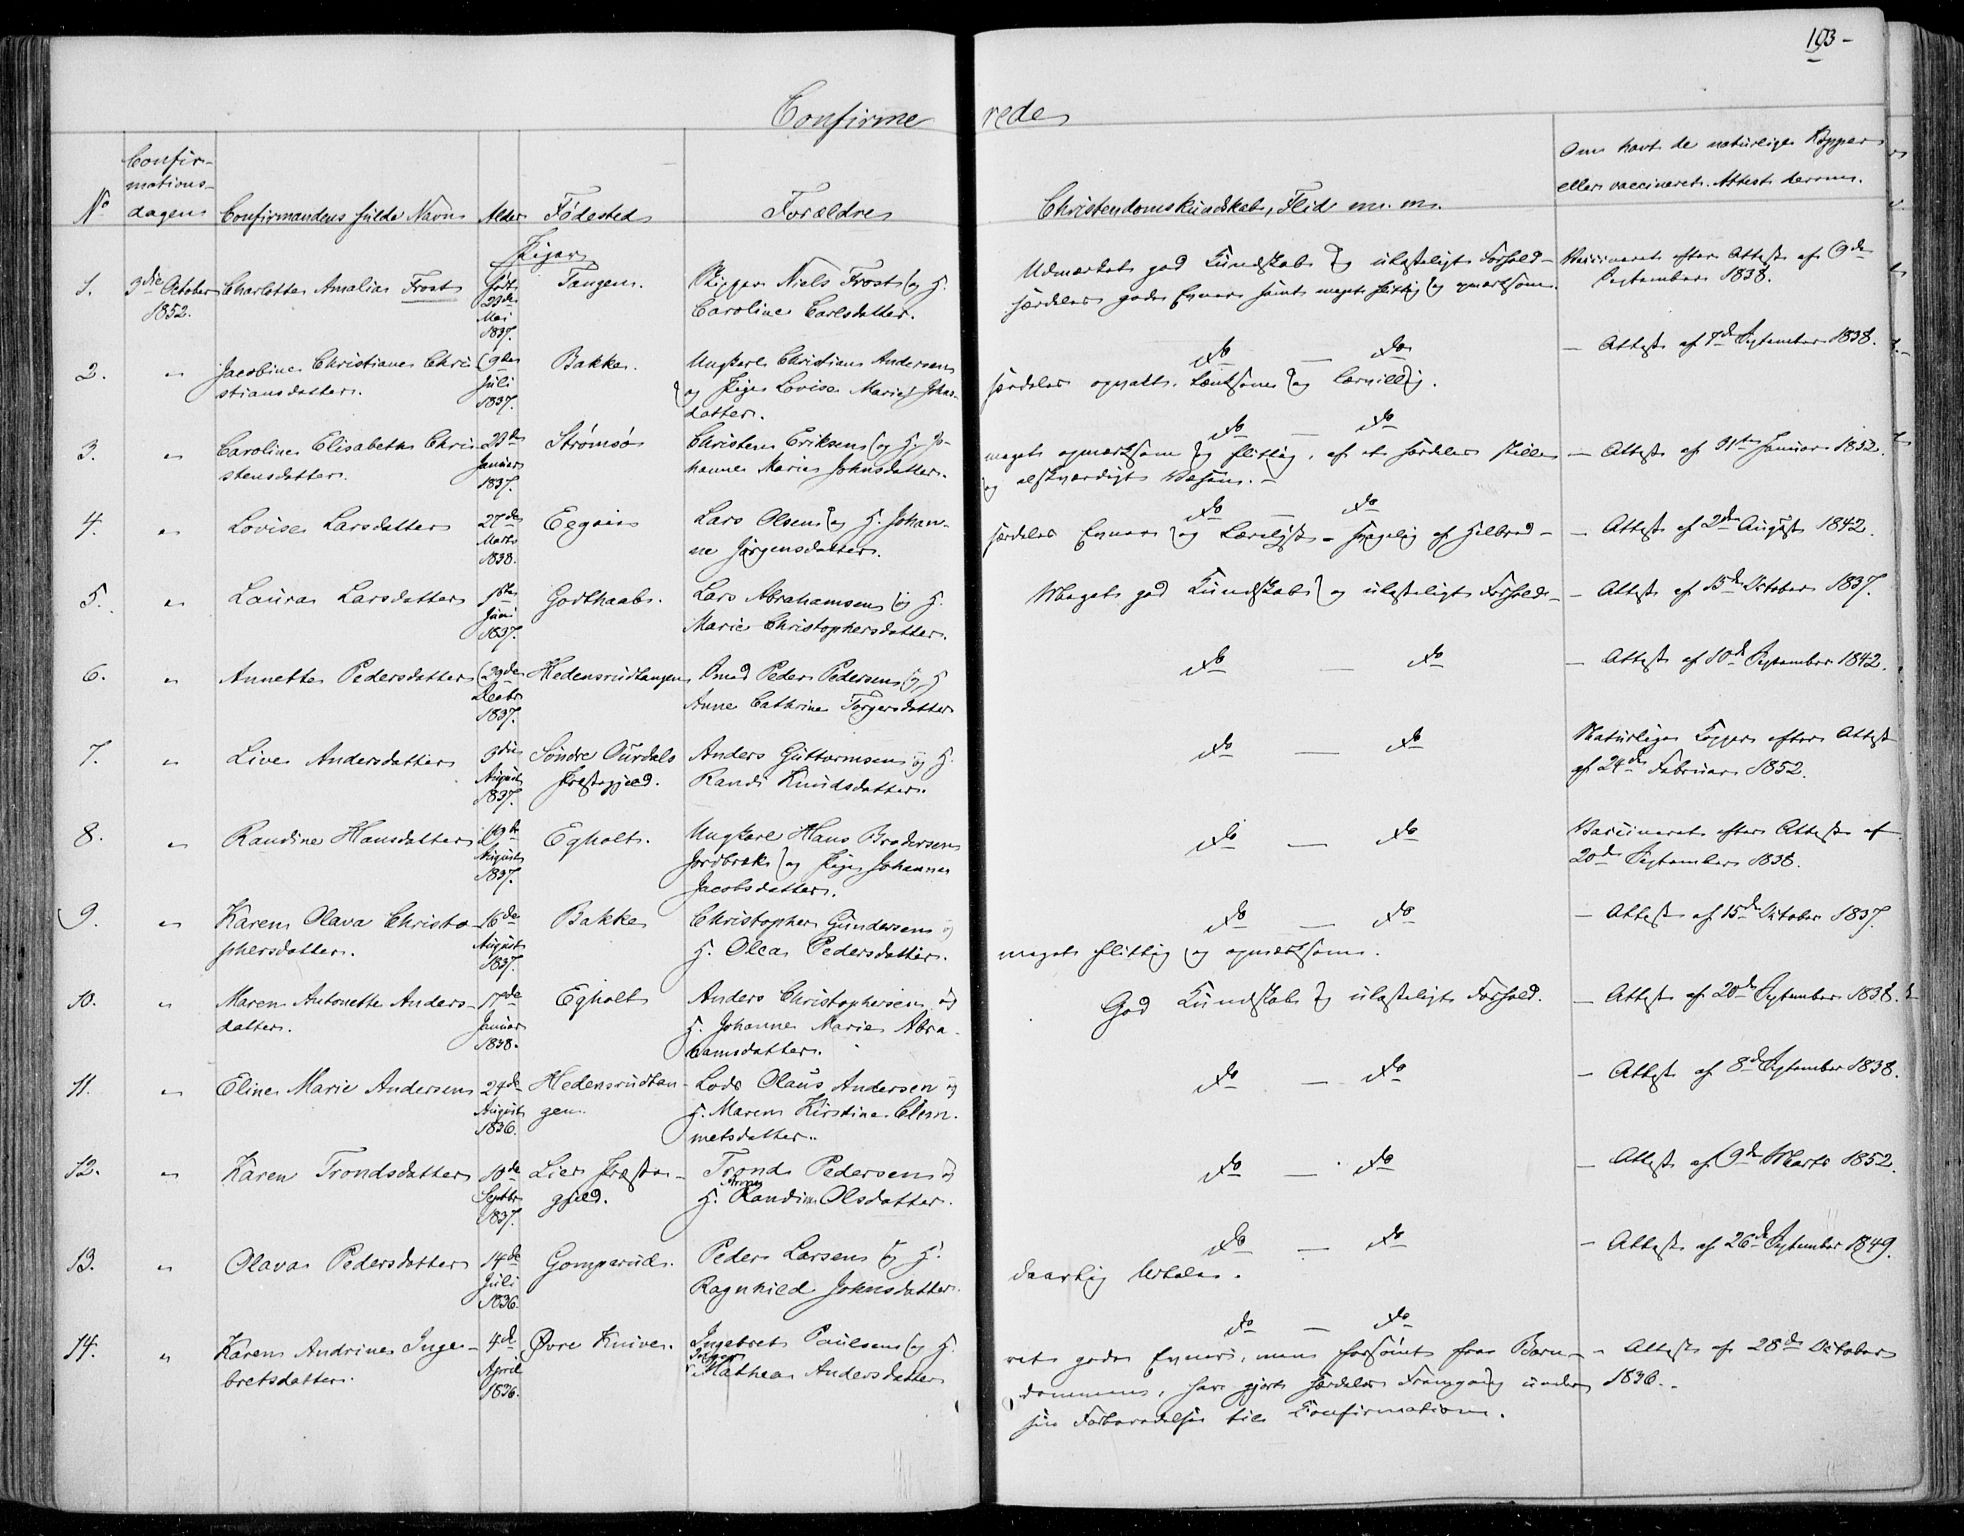 193-
Confirmerede
Confir-
mations-
No dagen Confirmandens fulde Navn Alder Fødested Forældre Christendomskundskab, Flid m.m. Om havt de naturlige Kopper
eller vaccineret. Attest derom.
Piger
1. 3die October 1852. Charlotte Amalia Frost født 29de Mai 1837. Tangen. Skipper Niels Frost og H.
Caroline Carlsdatter. Udmærket god Kundskab og ulasteligt Forhold-
særdeles gode Evner samt meget flittig og opmærksom. Vaccineret efter Attest af 9de
September 1838.
2. " Jacobine Christiane Chri
stiansdatter. 9de Juli 1837. Bakke. Ungkarl Christian Andersen
og Pige Lovise Marie Johns-
datter. do — do
særdeles opvakt, lærvillig. — Attest af 7de September 1838.
3. " Caroline Elisabeth Chri
stensdatter. 29de Januar 1837. Strømsø Christen Eriksen og H. Jo-
hanne Marie Johnsdatter. do — do
meget opmærksom og flittig, af et særdeles stille
og elskværdigt Væsen. — Attest af 31te Januar 1852.
4. " Lovise Larsdatter 27de Marts 1838. Eegain Lars Olsen og H. Johan-
ne Jørgensdatter. do — do
særdeles Evner og Lærelyst - svagelig af Helbred — Attest af 2de August 1842.
5. " Laura Larsdatter 1ste Juni 1837. Godthaab. Lars Abrahamsen og H.
Marie Christophersdatter. Meget god Kundskab og ulasteligt Forhold — Attest af 15de October 1837.
6. " Annette Pedersdatter 29de Decbr 1837. Hedensrudtangen Peder Pedersen og H
Anne Cathrine Torgersdatter do — do — Attest af 10de September 1842.
7. " Live Andersdatter 3die August 1837. Søndre Ourdals
Præstegjeld. Anders Guttormsen og H.
Randi Knudsdatter. do — do Naturlige Kopper efter Attest
af 24de Februar 1852.
8. " Randine Hansdatter 19de August 1837. Egholt. Ungkarl Hans Brodersen
Jordbræk og Pige Johanne
Jacobsdatter. do — do Vaccineret efter Attest af
20de September 1838.
9. " Karen Olava Christo-
phersdatter. 16de August 1837. Bakke Christopher Gundersen og
H. Olea Pedersdatter. do — do
meget flittig og opmærksom. — Attest af 15de October 1837.
10. " Maren Antonette Anders-
datter. 17de Januar 1838. Egholt Anders Christophersen og
H. Johanne Marie Abra-
hamsdatter. God Kundskab og ulasteligt Forhold. — Attest af 20de September 1838.
11. " Eline Marie Andersen 24de August 1836. Hedensrudtan-
gen. Lods Olaus Andersen og
H. Maren Kirstine Clem-
metsdatter. do — do — Attest af 8de September 1838.
12. " Karen Trondsdatter 10de Septbr 1837. Lier Præste-
gjeld. Trond Pedersen og
H. Randine Olsdatter. do — do — Attest af 9de Marts 1852.
13. " Olava Pedersdatter 14de Juli 1836. Gomperud. Peder Larsen og H.
Ragnhild Johnsdatter. do — do
daarlig Udtale. — Attest af 26de September 1849.
14. " Karen Andrine Inge-
bretsdatter. 4de April 1836. Øvre Knive. Ingebret Paulsen og H.
Mathea Andersdatter do — do
ret gode Evner, men forsømt fra Barn-
dommen, har gjort særdeles Fremgang under
sin Forberedelse til Confirmation. — Attest af 28de October
1836.